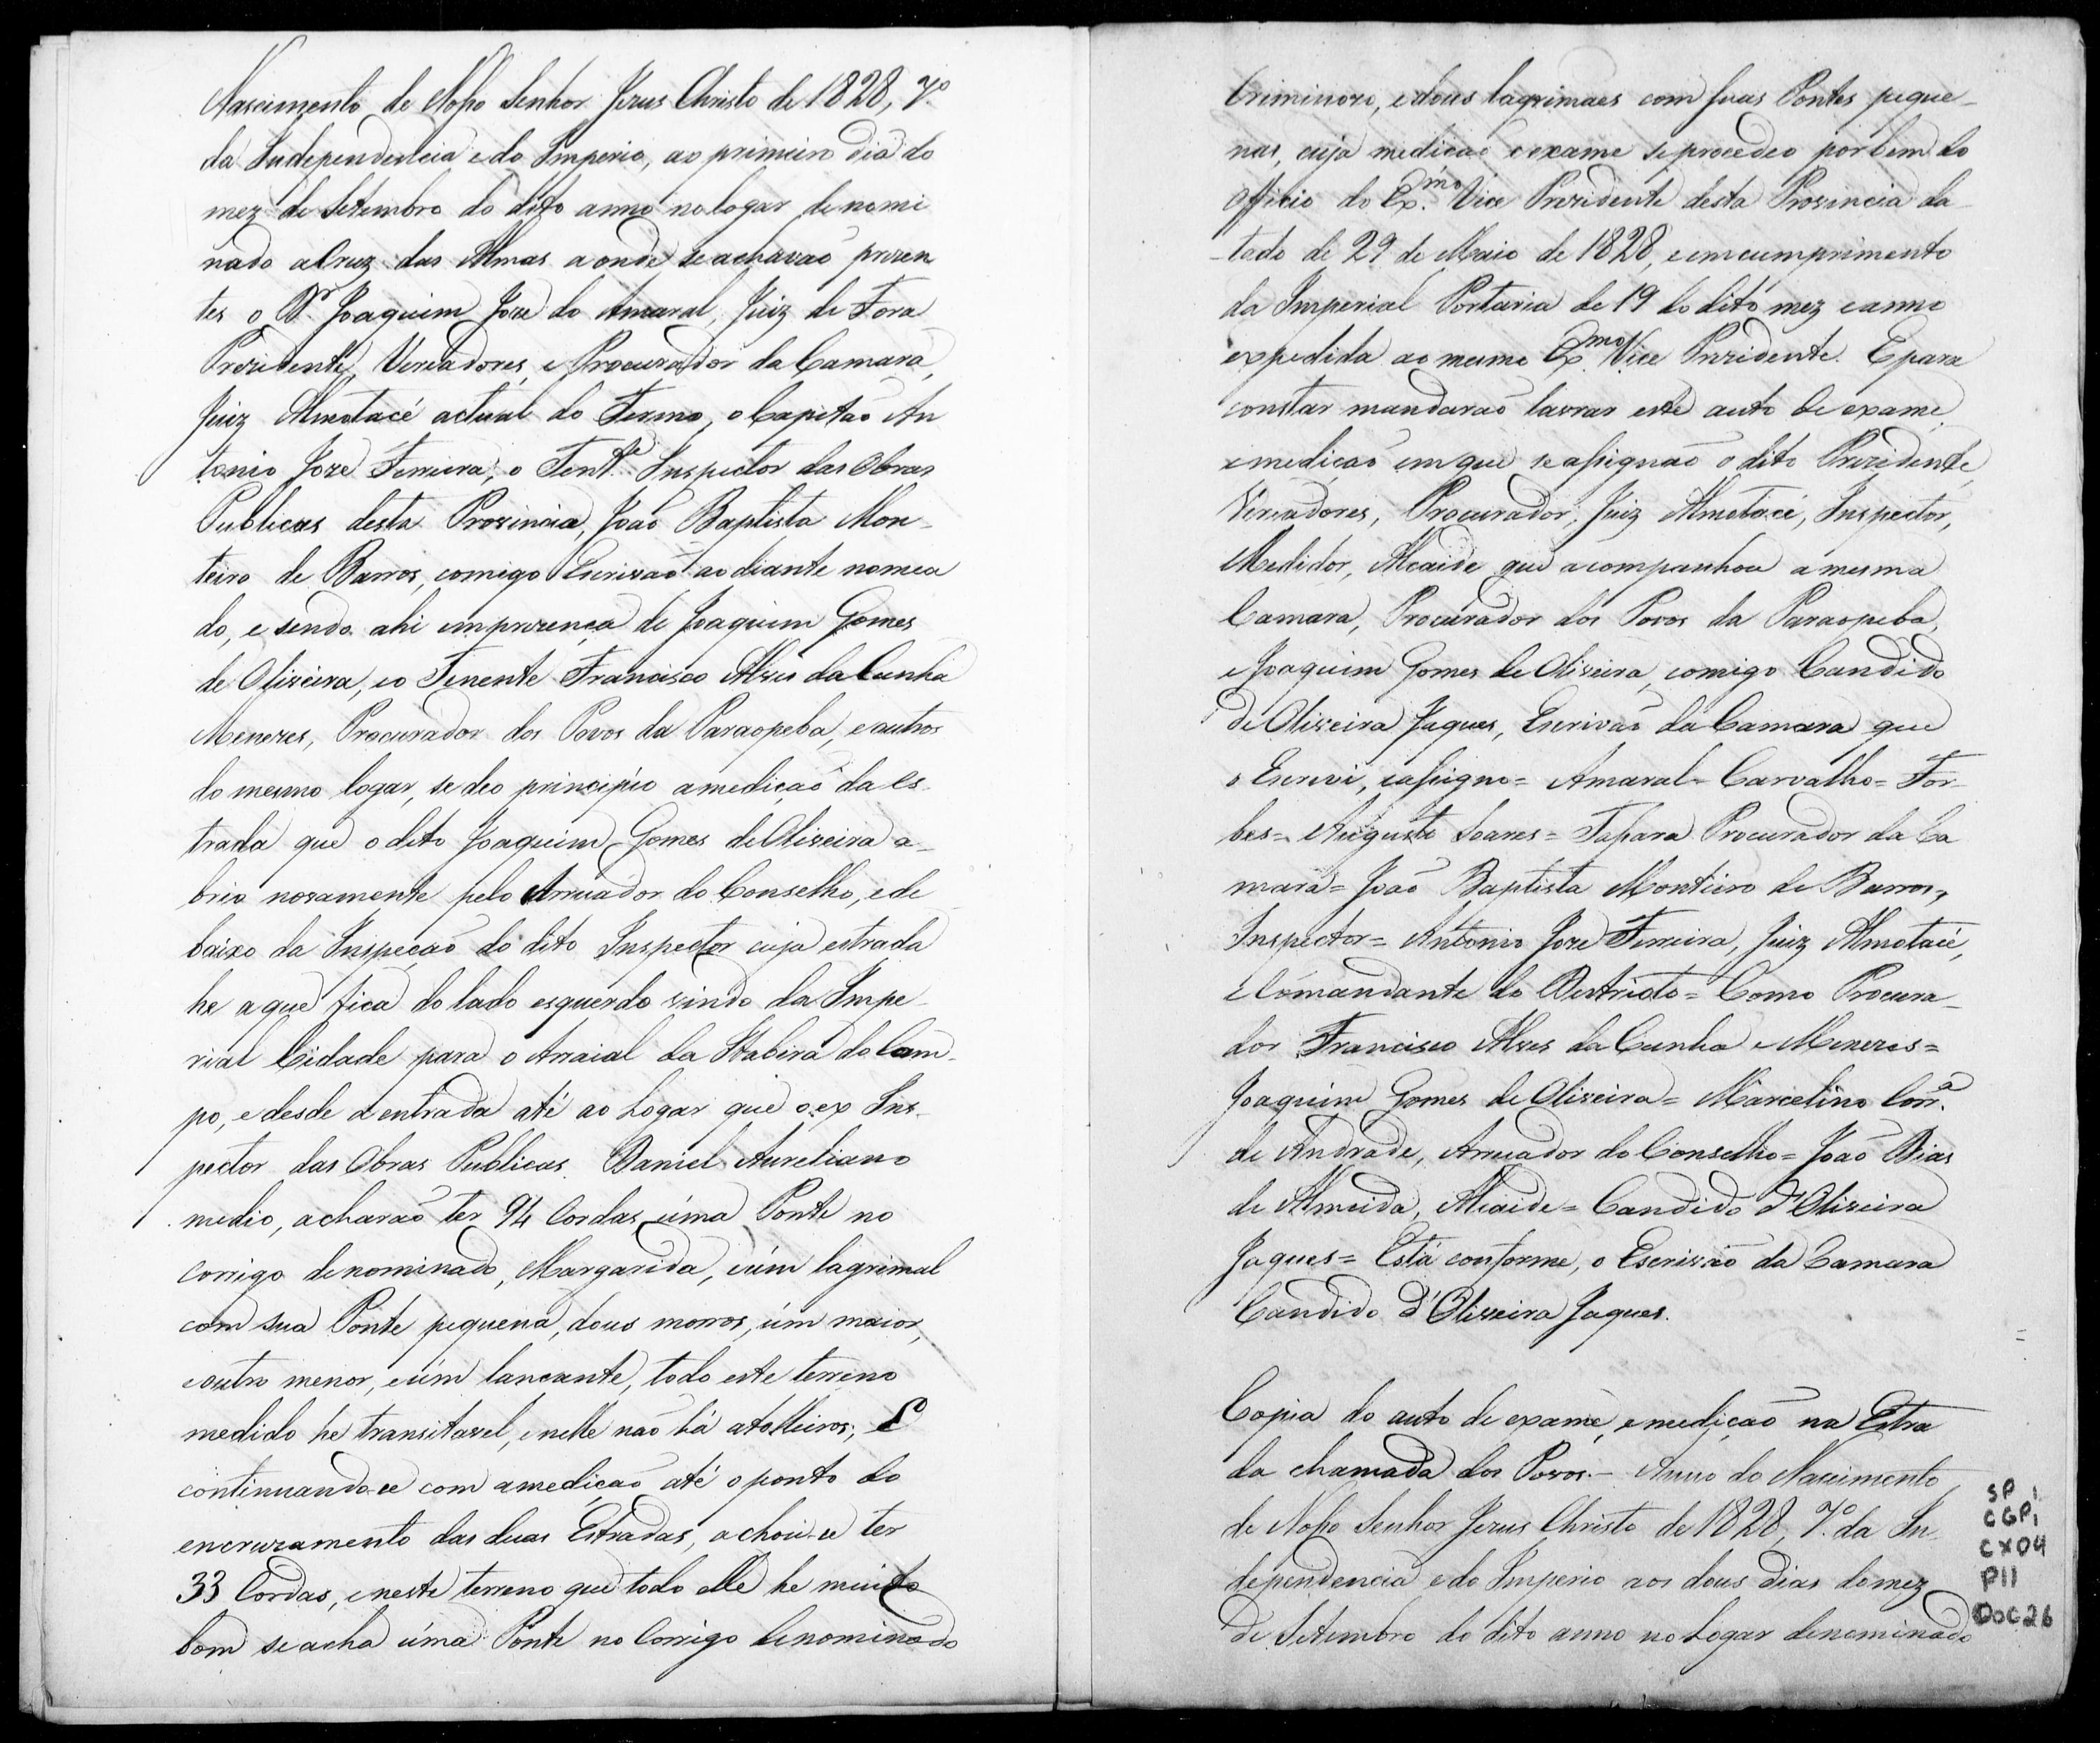 Nascimento de Nosso Senhor Jezus Christo de 1828, 7º
da Independencia e do Imperio, ao primeiro dia do
mez de Setembro do dito anno no logar denomi
nado a Cruz das Almas aonde se achavaõ prezen
tes o Dr. Joaquim Joze do Amaral, Juiz de Fora
Prezidente, Vereadores, e Procurador da Camara,
Juiz Almotacé actual do Termo, o Capitaõ An
tonio Joze Ferreira, o Tente. Inspector das Obras
Publicas desta Provincia, Joaõ Baptista Mon-
teiro de Barros, comigo Escrivaõ ao diante nomea
do, e sendo ahi em prezença de Joaquim Gomes
de Oliveira, e o Tenente Francisco Alves da Cunha
Menezes, Procurador dos Povos da Paraopeba, e outros
do mesmo logar, se deo principio a mediçaõ da es-
trada que o dito Joaquim Gomes de Oliveira a-
brio novamente pelo Arruador do Conselho, e de
baixo da Inspeçaõ do dito Inspector cuja estrada
he a que fica do lado esquerdo vindo da Impe-
rial Cidade para o Arraial da Itabira do Cam-
po, e desde a entrada até ao Logar que o ex Ins-
pector das Obras Publicas Daniel Aureliano
medio, acharaõ ter 94 Cordas, úma Ponte no
corrigo denominado, Margarida, e úm lagrimal
com sua Ponte pequena, dous morros, úm maior,
e outro menor, e úm lancante, todo este terreno
medido he transitavel, e nelle naõ há atolleiros; E
continuando-se com a mediçaõ até o ponto do
encruzamento das duas Estradas, achou-se ter
33 Cordas, e neste terreno que todo elle he muito
bom se acha úma Ponte no Corrigo denominado
Criminozo, e dous lagrimaes com suas Pontes peque-
nas, cuja mediçaõ e exame se procedeo por bem do
Officio do Exmo. Vice Prezidente desta Provincia da-
tado de 29 de Maio de 1828, e em cumprimento
da Imperial Portaria de 19 do dito mez e anno
expedida ao mesmo Exmo. Vice Prezidente. E para
constar mandaraõ lavrar este auto de exame,
e mediçaõ em que se assignaõ o dito Prezidente,
Vereadores, Procurador, Juiz Almotacé, Inspector,
Medidor, Alcaide que acompanhou a mesma
Camara, Procurador dos Povos da Paraopeba,
e Joaquim Gomes de Oliveira, comigo Candido
de Oliveira Jaques, Escrivaõ da Camara que
o Escrevi, e assigno = Amaral = Carvalho = For-
bes = Augusto Soares = Procurador da Ca
mara = Joaõ Baptista Monteiro de Barros,
Inspector = Antonio Joze Ferreira, Juiz Almotacé,
e Comandante do Destricto = Como Procura-
dor Francisco Alves da Cunha e Menezes =
Joaquim Gomes de Oliveira = Marcelino Corra.
de Andrade, Arruador do Conselho = Joaõ Dias
de Almeida, Alcaide = Candido d'Oliveira
Jaques = Está conforme, o Escrivão da Camara
Candido d'Oliveira Jaques.
Copia do auto de exame, e mediçaõ na Estra
da chamada dos Povos. - Anno do Nascimento
de Nosso Senhor Jezus Christo de 1828, 7º. da In-
dependencia e do Imperio aos dous dias do mez
de Setembro do dito anno no Logar denominado
SP 1
CGP1
CX04
P11
DOC26